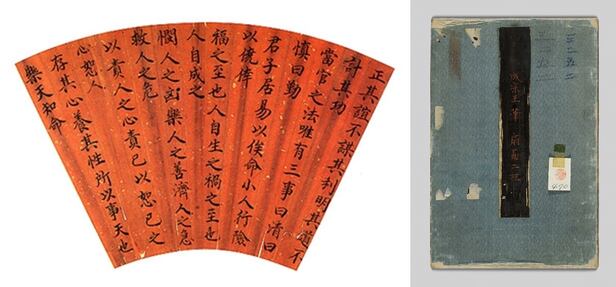 正其誼不謀其利明其道不
計其功
當官之法唯有三事曰清曰
慎曰勤
君子居易以俟命小人行險
以僥倖
福之至也人自生之禍之至也
人自成之
憫人之凶樂人之善濟人之急
救人之危
以責人之心責己以恕己之
心恕人
存其心養其性所以事天也
樂天知命
王筆 扇面二